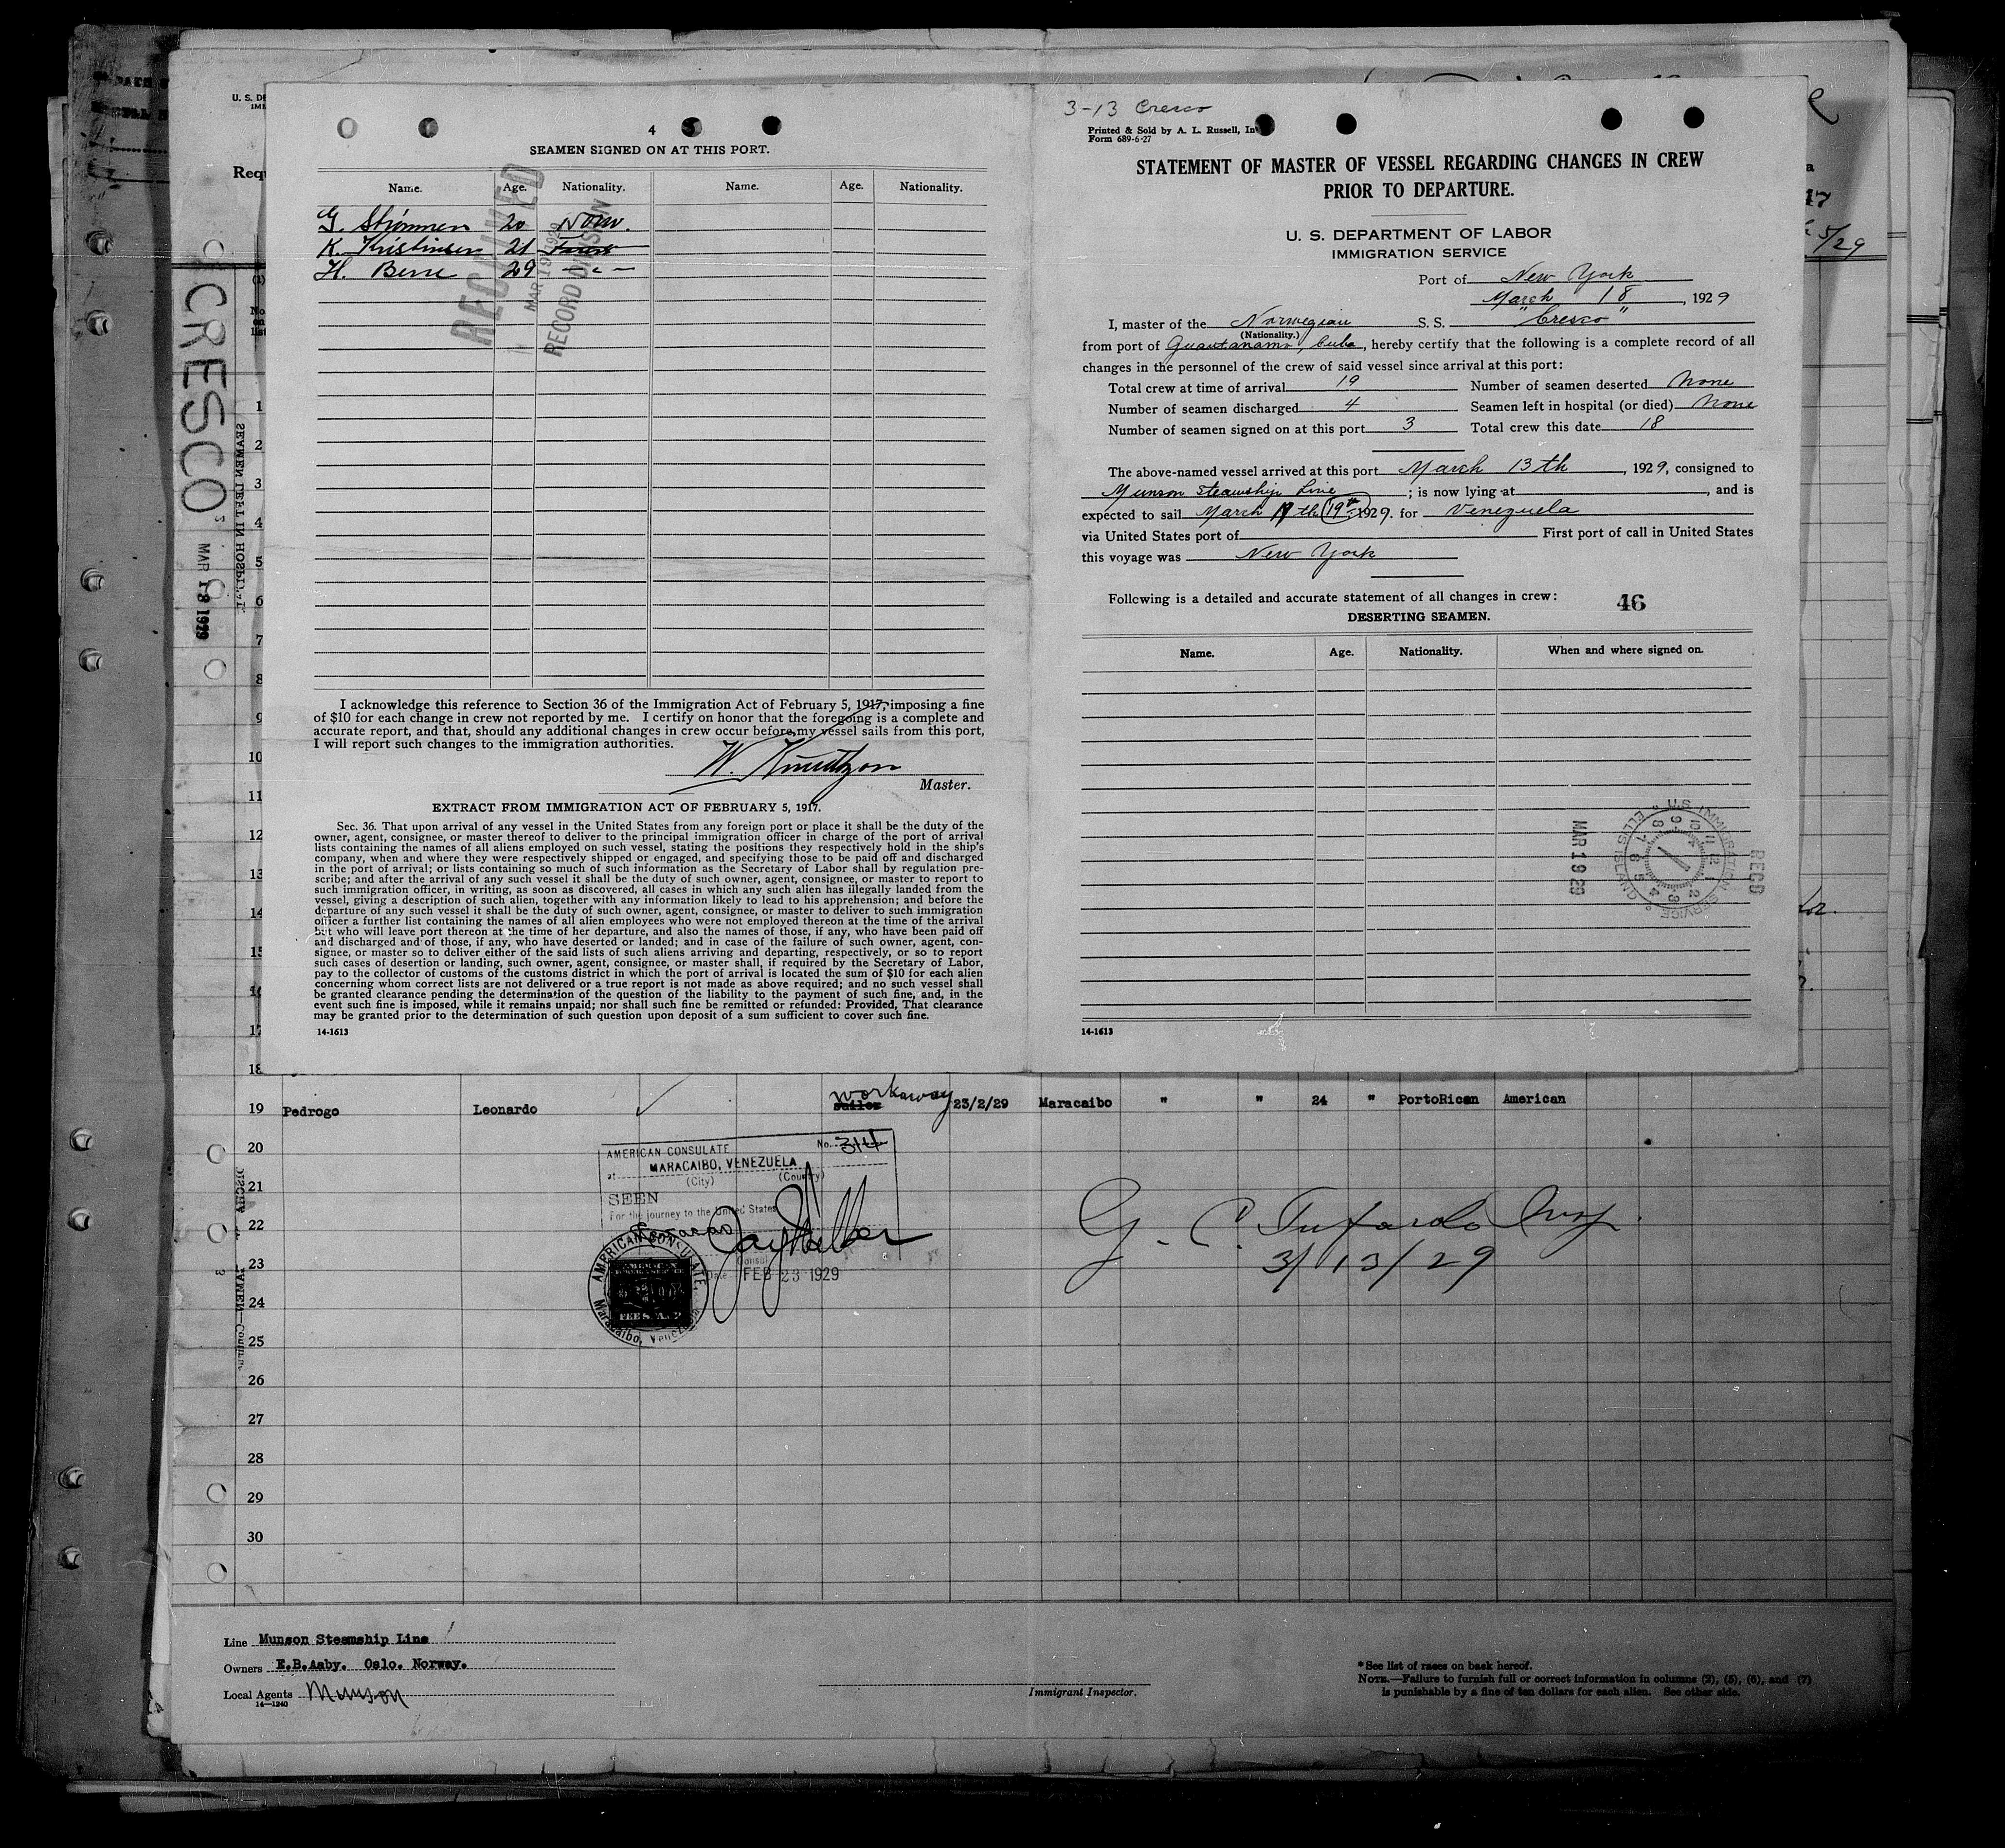 4
SEAMEN SIGNED ON AT THIS PORT.
Name. Age. Nationality. Name. Age. Nationality.
G. Strømmen 20 Norw.
K. Kristinsen 21
H. Berre 29 - " -
RECEIVED
MAR 19 1929
RECORD DIVISION
I acknowledge this reference to Section 36 of the Immigration Act of February 5, 1917, imposing a fine
of $10 for each change in crew not reported by me. I certify on honor that the foregoing is a complete and
accurate report, and that, should any additional changes in crew occur before my vessel sails from this port,
I will report such changes to the immigration authorities.
W. Knudtzon
Master.
EXTRACT FROM IMMIGRATION ACT OF FEBRUARY 5, 1917.
Sec. 36. That upon arrival of any vessel in the United States from any foreign port or place it shall be the duty of the
owner, agent, consignee, or master thereof to deliver to the principal immigration officer in charge of the port of arrival
lists containing the names of all aliens employed on such vessel, stating the positions they respectively hold in the ship's
company, when and where they were respectively shipped or engaged, and specifying those to be paid off and discharged
in the port of arrival; or lists containing so much of such information as the Secretary of Labor shall by regulation pre-
scribe; and after the arrival of any such vessel it shall be the duty of such owner, agent, consignee, or master to report to
such immigration officer, in writing, as soon as discovered, all cases in which any such alien has illegally landed from the
vessel, giving a description of such alien, together with any information likely to lead to his apprehension; and before the
departure of any such vessel it shall be the duty of such owner, agent, consignee, or master to deliver to such immigration
officer a further list containing the names of all alien employees who were not employed thereon at the time of the arrival
but who will leave port thereon at the time of her departure, and also the names of those, if any, who have been paid off
and discharged and of those, if any, who have deserted or landed; and in case of the failure of such owner, agent, con-
signee, or master so to deliver either of the said lists of such aliens arriving and departing, respectively, or so to report
such cases of desertion or landing, such owner, agent, consignee, or master shall, if required by the Secretary of Labor,
pay to the collector of customs of the customs district in which the port of arrival is located the sum of $10 for each alien
concerning whom correct lists are not delivered or a true report is not made as above required; and no such vessel shall
be granted clearance pending the determination of the question of the liability to the payment of such fine, and, in the
event such fine is imposed, while it remains unpaid; nor shall such fine be remitted or refunded: Provided, That clearance
may be granted prior to the determination of such question upon deposit of a sum sufficient to cover such fine.
14-1613
3-13 Cresco
Printed & Sold by A. L. Russell, In
Form 689-6-27
STATEMENT OF MASTER OF VESSEL REGARDING CHANGES IN CREW
PRIOR TO DEPARTURE.
U. S. DEPARTMENT OF LABOR
IMMIGRATION SERVICE
Port of New York
March 18, 1929
I, master of the Norwegian S. S. "Cresco"
(Nationality.)
from port of Guantanamo, Cuba, hereby certify that the following is a complete record of all
changes in the personnel of the crew of said vessel since arrival at this port:
Total crew at time of arrival 19 Number of seamen deserted None
Number of seamen discharged 4 Seamen left in hospital (or died) None
Number of seamen signed on at this port 3 Total crew this date 18
The above-named vessel arrived at this port March 13th, 1929, consigned to
Munson Steamship Line; is now lying at , and is
expected to sail March 19th 1929. for Venezuela
via United States port of First port of call in United States
this voyage was New York
Following is a detailed and accurate statement of all changes in crew:
46
DESERTING SEAMEN.
Name. Age. Nationality. When and where signed on.
RECD
U.S. IMMIGRATION SERVICE
ELLIS ISLAND
MAR 19 29
14-1613
CRESCO
MAR 18 1929
SEAMEN LEFT IN HOSPITAL
1
2
3
4
5
6
7
8
9
10
11
12
13
14
15
16
17
18
19 Pedrogo Leonardo ✓ sailor workaway 23/2/29 Maracaibo " " 24 " PortoRican American
20
21
22
23
24
25
26
27
28
29
30
AMERICAN CONSULATE No. 314
at MARACAIBO, VENEZUELA
(City) (Country)
SEEN
For the journey to the United States
Consul
Date FEB 23 1929
AMERICAN CONSULATE, Maracaibo, Venezuela
G. C. Tufarolo Insp.
3/13/29
Line Munson Steamship Line
Owners E.B.Aaby. Oslo. Norway.
Local Agents Munson
14-1240
Immigrant Inspector.
* See list of races on back hereof.
NOTE.—Failure to furnish full or correct information in columns (2), (5), (6), and (7)
is punishable by a fine of ten dollars for each alien. See other side.